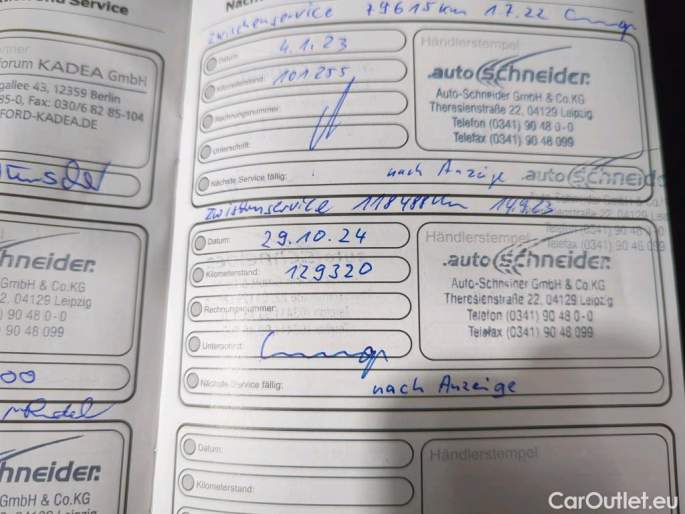 Service
Zwischenservice 79615km 1.7.22
Datum: 4.1.23
Händlerstempel
Kilometerstand: 101255
Rechnungsnummer:
Unterschrift:
Nächste Service fällig: nach Anzeige
auto Schneider.
Auto-Schneider GmbH & Co.KG
Theresienstraße 22, 04129 Leipzig
Telefon (0341) 90 48 0-0
Telefax (0341) 90 48 099
auto Schneid
22, 04129 Leipzig
(0341) 90 48 0-0
Telefax (0341) 90 48 099
Zwischenservice 118488km 14.9.23
Datum: 29.10.24
Händlerstempel
Kilometerstand: 129320
Rechnungsnummer:
Unterschrift:
Nächste Service fällig: nach Anzeige
auto Schneider.
Auto-Schneider GmbH & Co.KG
Theresienstraße 22, 04129 Leipzig
Telefon (0341) 90 48 0-0
Telefax (0341) 90 48 099
Datum:
Kilometerstand:
Händlerstempel
forum KADEA GmbH
gallee 43, 12359 Berlin
85-0, Fax: 030/6 82 85-104
FORD-KADEA.DE
hneider.
GmbH & Co.KG
2, 04129 Leipzig
) 90 48 0-0
90 48 099
hneider.
GmbH & Co.KG
04129 Leipzig
CarOutlet.eu